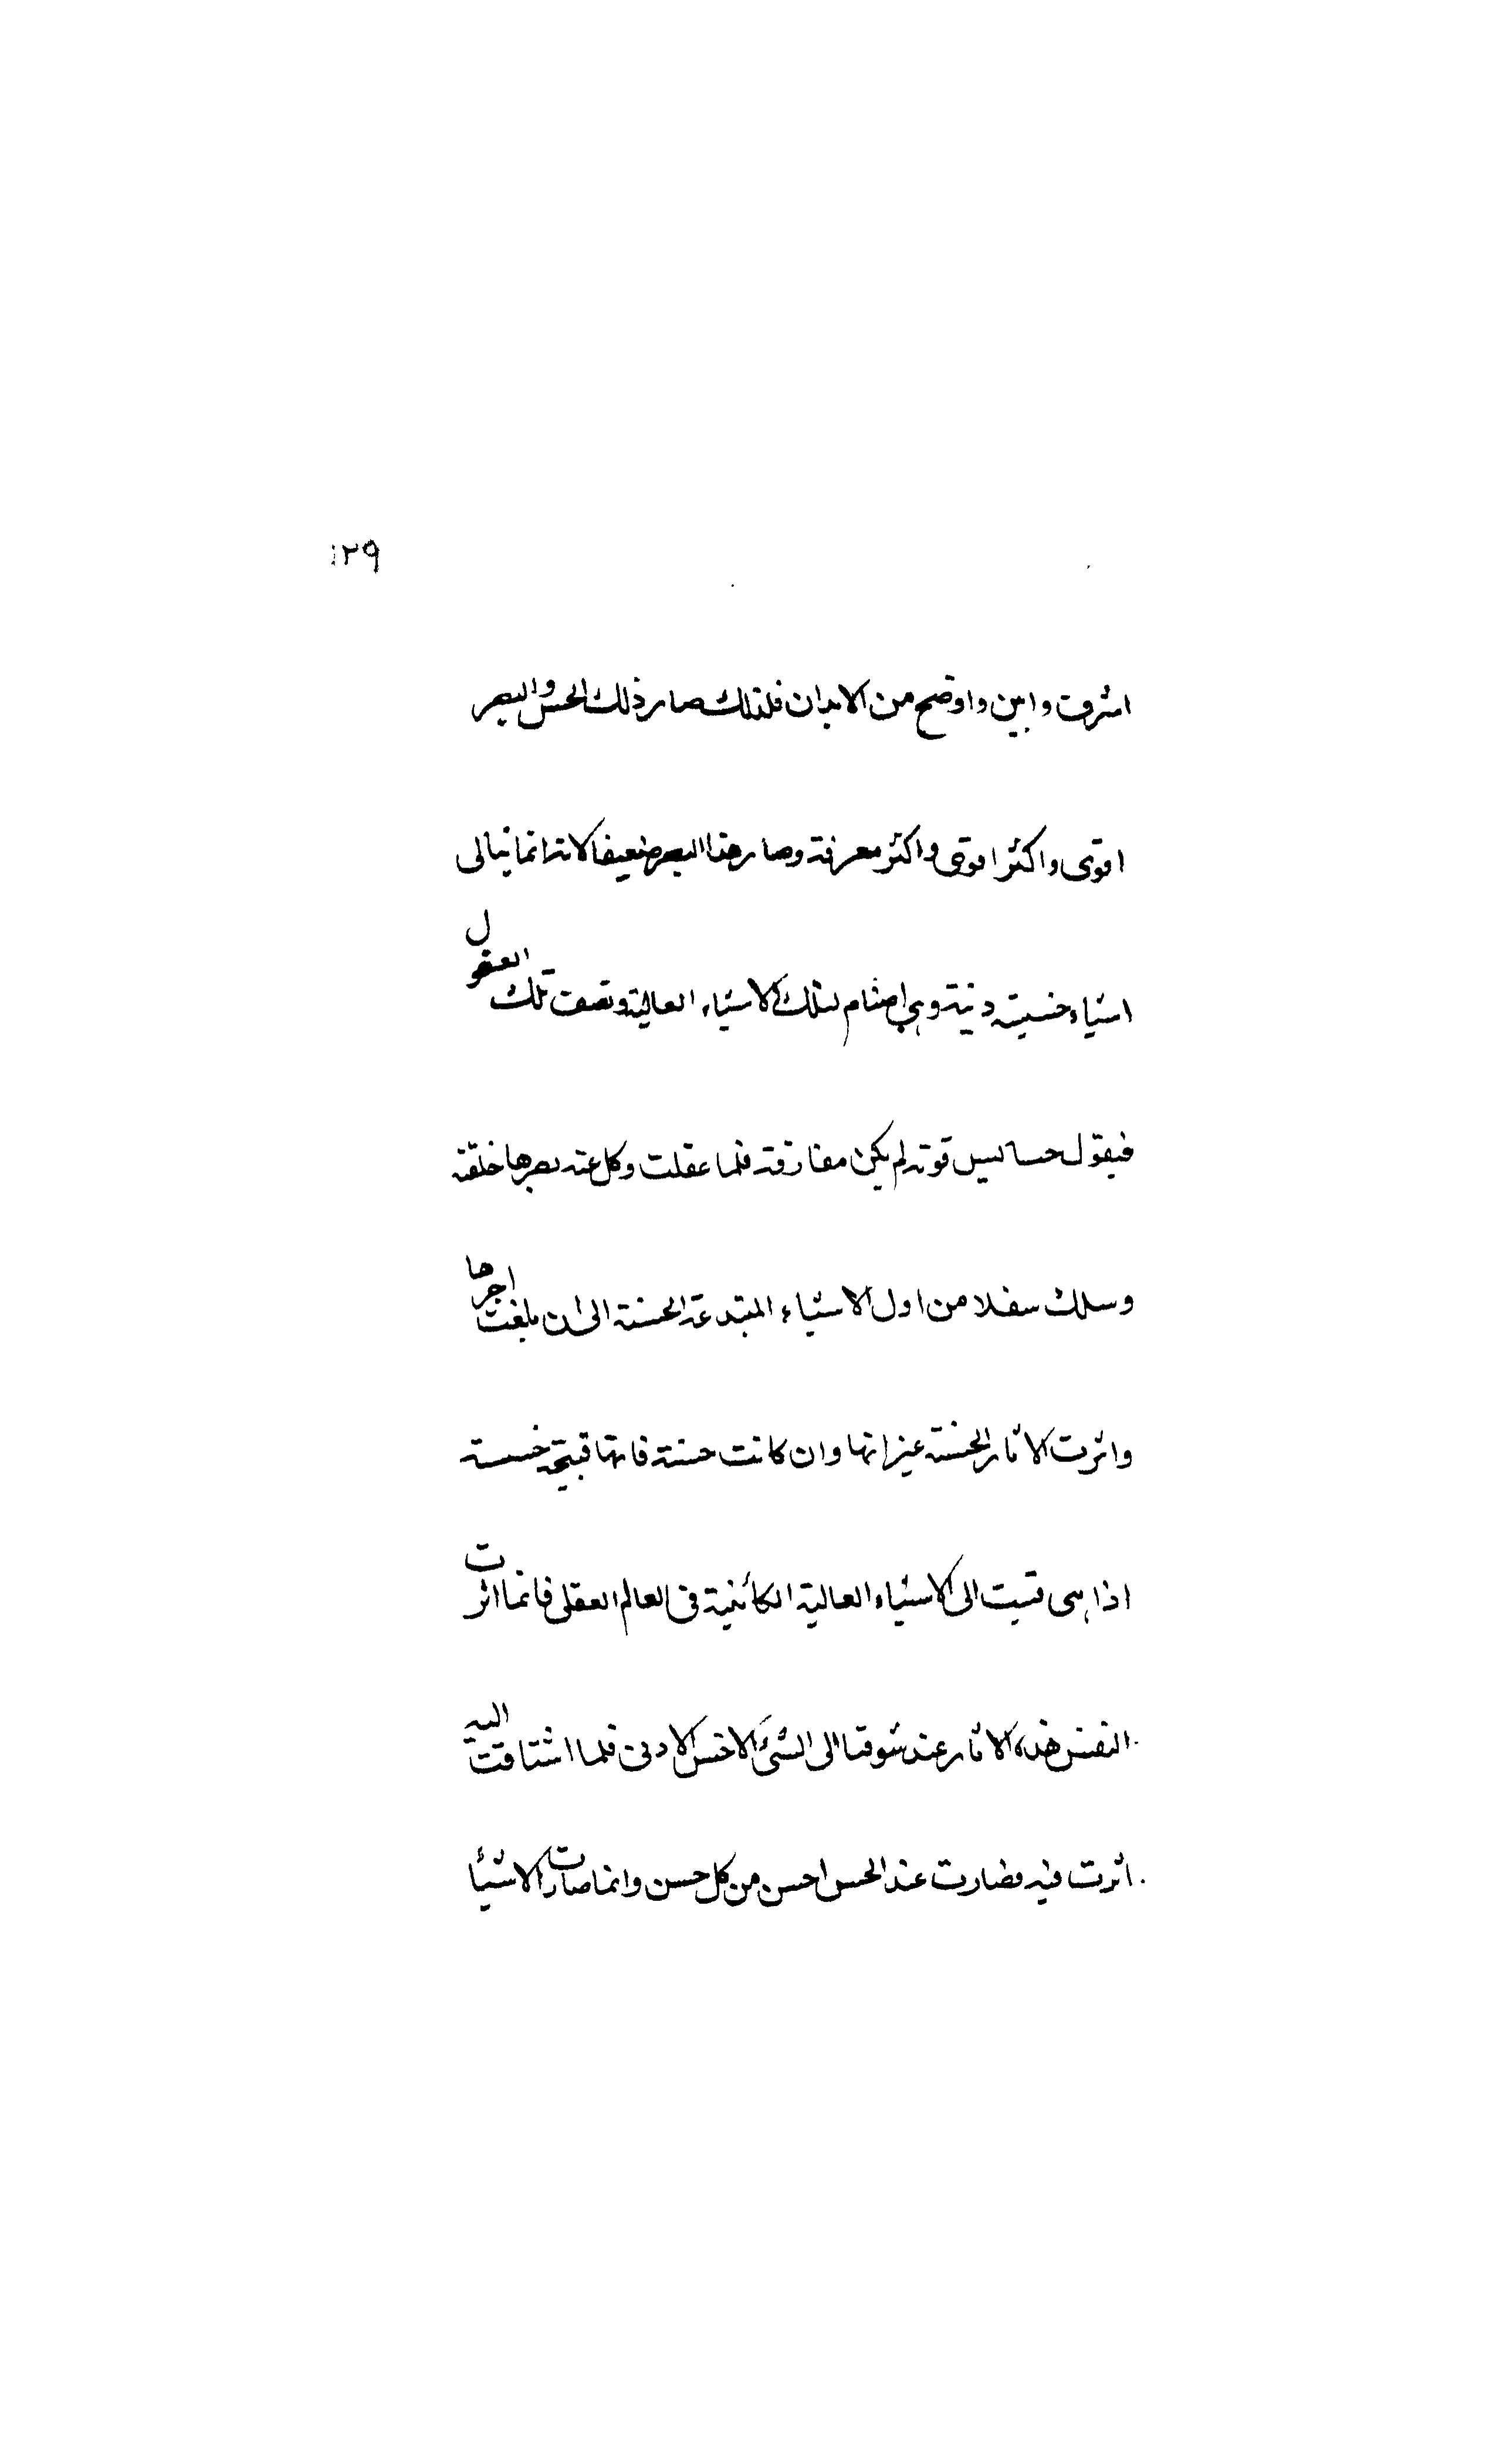 ١٢٩
اشرف وابين واوضح من الابدان فلذلك صار ذلك الحس والبصر
اقوى واكثر اقوى واكثر معرفة وصار هذا البصر ضعيفا لانه انما ينال
اشياء خسيسة دنية وهي اصنام لتلك الاشياء العالية ونصف تلك العقول
فيقول حسايس قوته لم يكن مفارقة فلما عقلت وكل عنه بصرها خلقته
وسلك سفلا من اول الاشياء المبتدعة الحسنة الى ان بلغت اخرها
واثرت الاثار الحسنة غير انها وان كانت حسنة فانها قبيحة خسسة
اذا هي قيست الى الاشياء العالية الكائنية في العالم العقلي فانما اثرت
النفس هذه الاثار عند شوقها الى الشئ الاخس الادنى فلما اشتاقت اليه
اثرت فيه فصارت عند الحس احسن من كل حسن وانما صارت الاشيأ